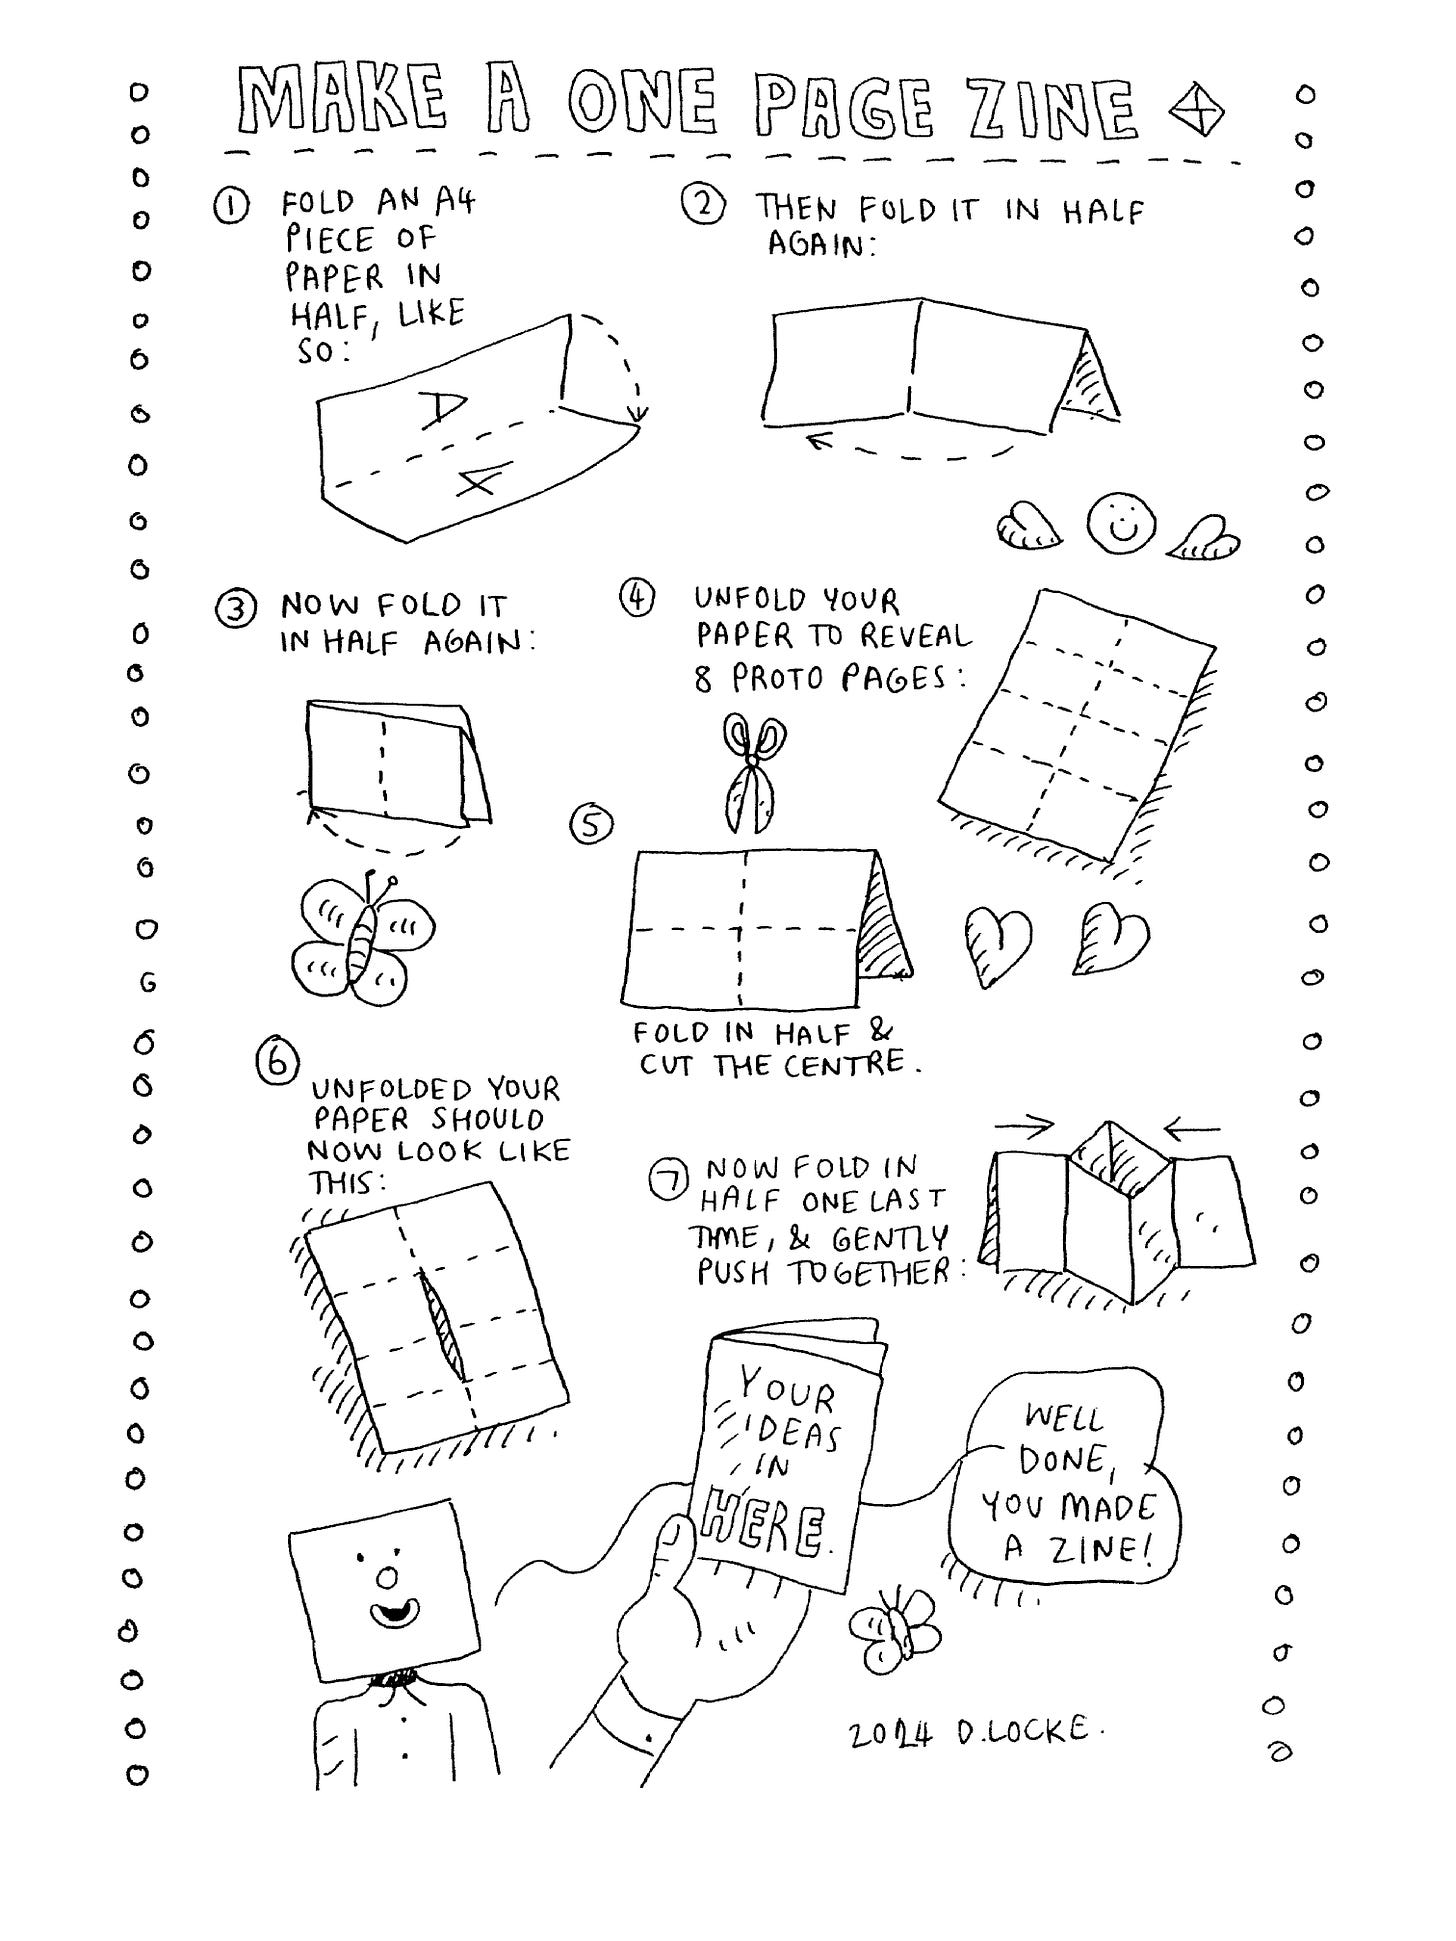 MAKE A ONE PAGE ZINE
① FOLD AN A4
PIECE OF
PAPER IN
HALF, LIKE
SO:
A4
② THEN FOLD IT IN HALF
AGAIN:
③ NOW FOLD IT
IN HALF AGAIN:
④ UNFOLD YOUR
PAPER TO REVEAL
8 PROTO PAGES:
⑤
FOLD IN HALF &
CUT THE CENTRE.
⑥
UNFOLDED YOUR
PAPER SHOULD
NOW LOOK LIKE
THIS:
⑦ NOW FOLD IN
HALF ONE LAST
TIME, & GENTLY
PUSH TOGETHER:
YOUR
IDEAS
IN
HERE.
WELL
DONE,
YOU MADE
A ZINE!
2024 D.LOCKE.